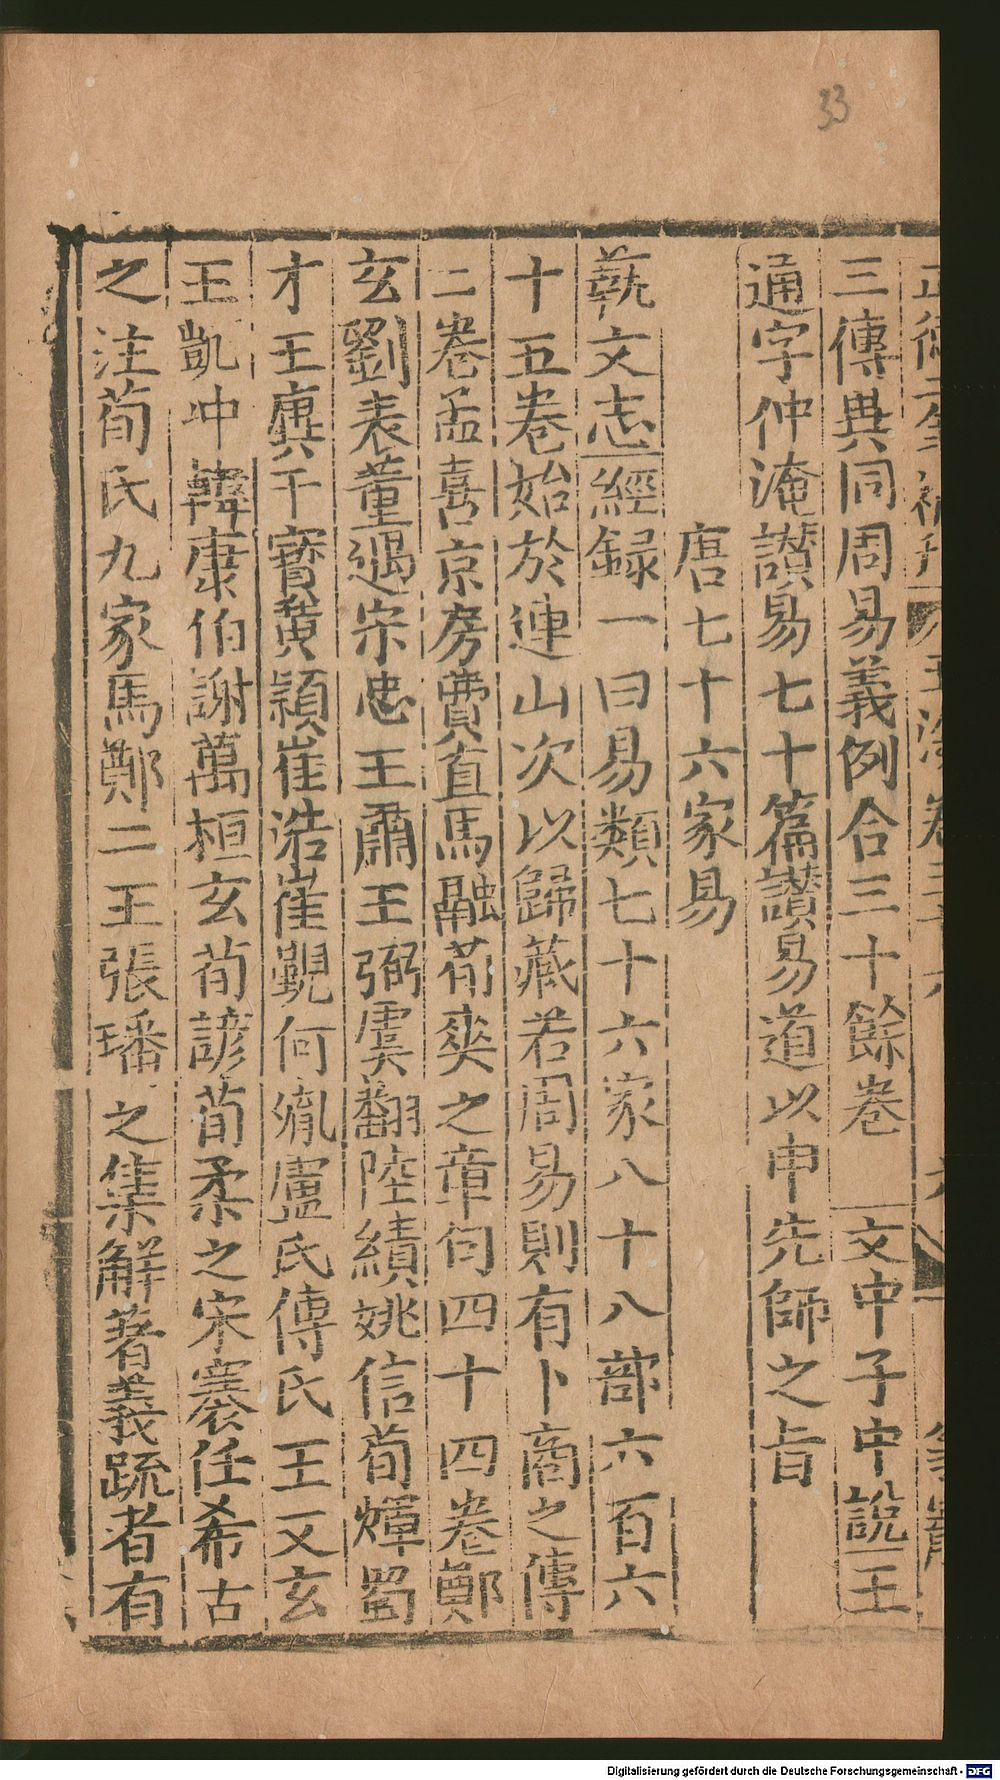 33
三傳異同周易義例合三十餘卷　文中子中説王
通字仲淹讃易七十篇讃易道以申先師之旨
唐七十六家易
藝文志經録一曰易類七十六家八十八部六百六
十五卷始於連山次以歸藏若周易則有卜商之傳
二卷孟喜京房費直馬融荀爽之章句四十四卷鄭
玄劉表董遇宋忠王肅王弼虞翻陸績姚信荀煇蜀
才王廙干寳黄穎崔浩崔覲何胤盧氏傳氏王又玄
王凱冲韓康伯謝萬桓玄荀諺荀柔之宋褰任希古
之注荀氏九家馬鄭二王張璠之集解著義疏者有
Digitalisierung gefördert durch die Deutsche Forschungsgemeinschaft - DFG